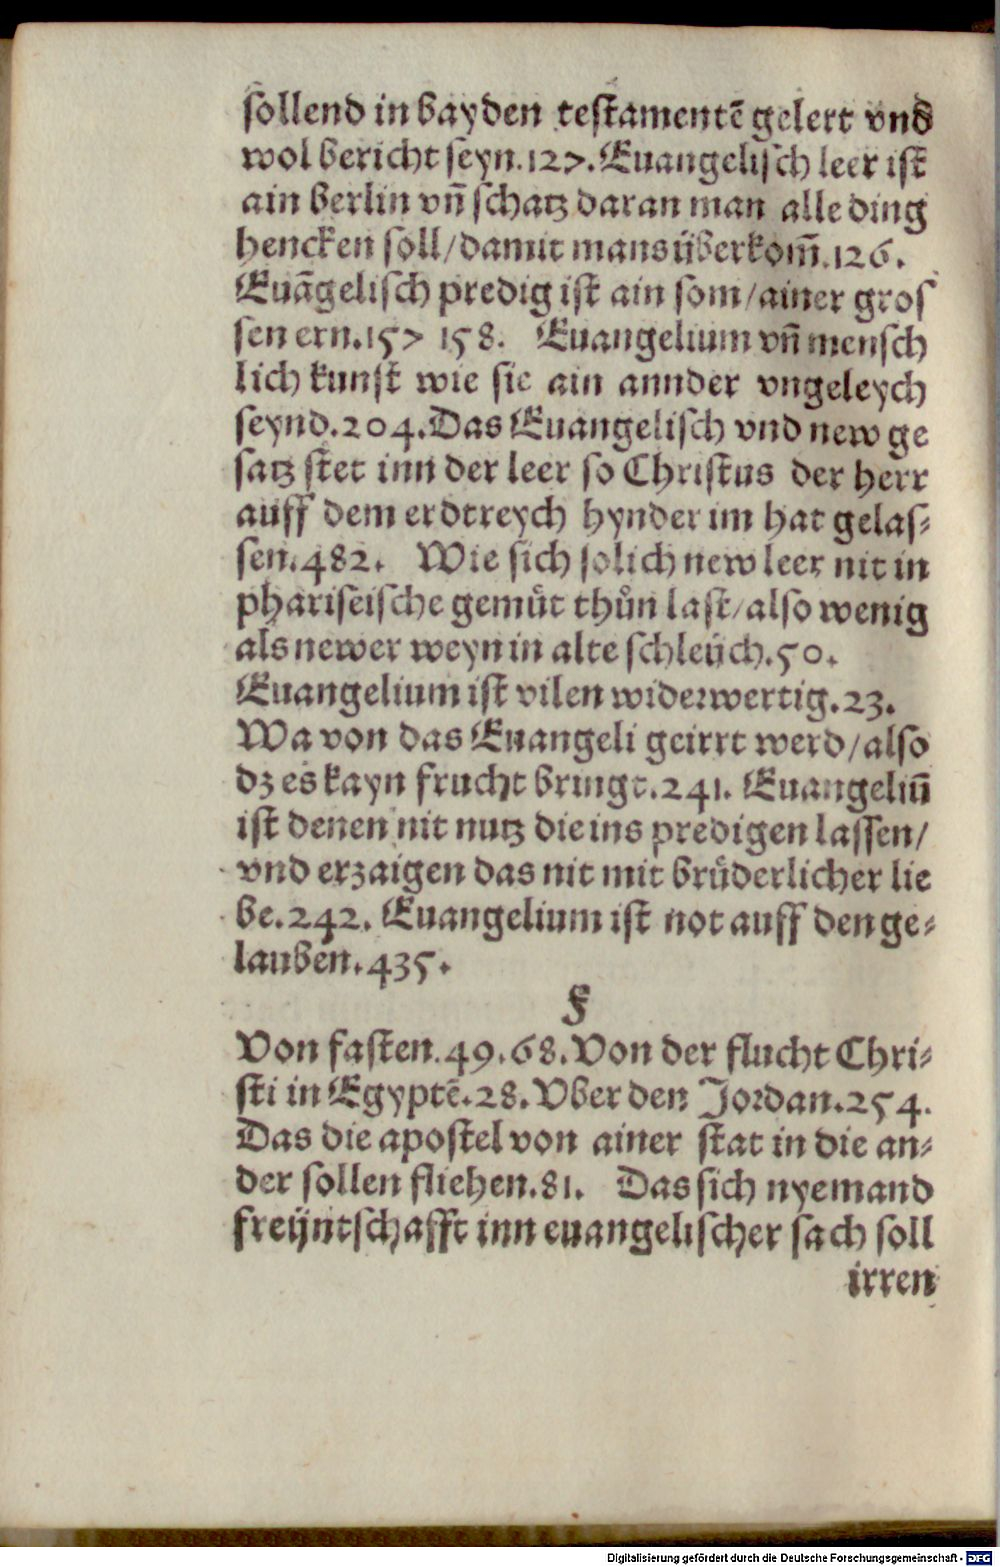 sollend in bayden testamentē gelert vnd
wol bericht seyn.127.Euangelisch leer ist
ain berlin vñ schatz daran man alle ding
hencken soll/damit mans überkom̃.126.
Euãgelisch predig ist ain som/ainer gros
sen ern.157 158. Euangelium vñ mensch
lich kunst wie sie ain annder vngeleych
seynd.204.Das Euangelisch vnd new ge
satz stet inn der leer so Christus der herr
auff dem erdtreych hynder im hat gelas⸗
sen.482. Wie sich solich new leer nit in
phariseische gemuͤt thuͦn last/also wenig
als newer weyn in alte schleüch.50.
Euangelium ist vilen widerwertig.23.
Wa von das Euangeli geirrt werd/also
dz es kayn frucht bringt.241. Euangeliũ
ist denen nit nutz die ins predigen lassen/
vnd erzaigen das nit mit bruͤderlicher lie
be.242. Euangelium ist not auff den ge⸗
lauben.435.
F
Von fasten.49.68.Von der flucht Chri⸗
sti in Egyptē.28.Vber den Jordan.254.
Das die apostel von ainer stat in die an⸗
der sollen fliehen.81. Das sich nyemand
freüntschafft inn euangelischer sach soll
irren
Digitalisierung gefördert durch die Deutsche Forschungsgemeinschaft - DFG